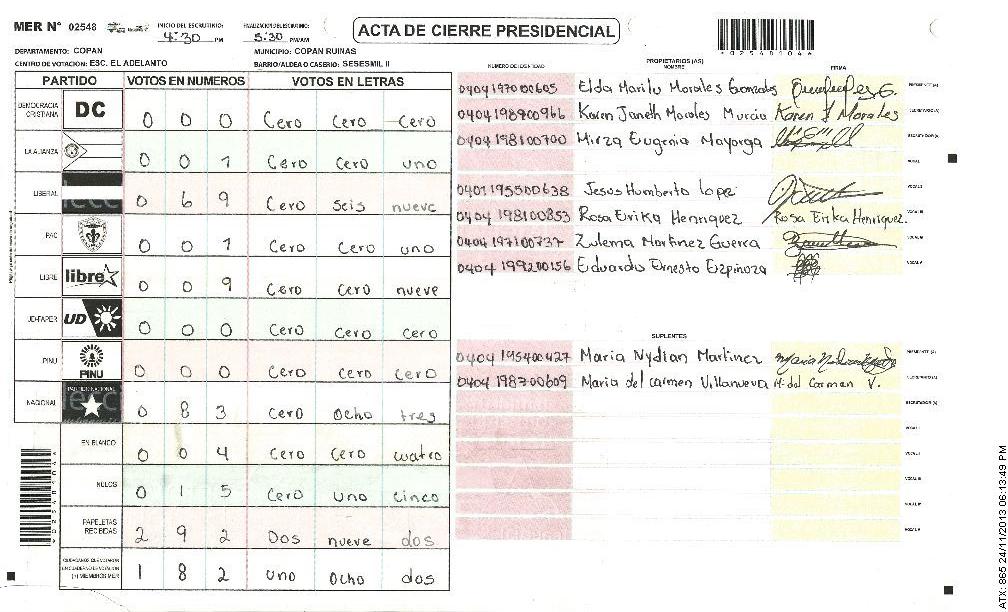 MER N° 02548 INICIO DEL ESCRUTINIO: 4:30 PM FINALIZACION DEL ESCRUTINIO: 5:30 PM/AM ACTA DE CIERRE PRESIDENCIAL
DEPARTAMENTO: COPAN MUNICIPIO: COPAN RUINAS
CENTRO DE VOTACION: ESC. EL ADELANTO BARRIO/ALDEA O CASERIO: SESESMIL II
PARTIDO VOTOS EN NUMEROS VOTOS EN LETRAS
DEMOCRACIA CRISTIANA DC 0 0 0 Cero Cero Cero
LA ALIANZA 0 0 1 Cero Cero uno
LIBERAL 0 6 9 Cero seis nueve
PAC 0 0 1 Cero Cero uno
LIBRE libre 0 0 9 Cero Cero nueve
UD-FAPER UD 0 0 0 Cero Cero Cero
PINU PINU 0 0 0 Cero Cero Cero
NACIONAL PARTIDO NACIONAL 0 8 3 Cero Ocho tres
EN BLANCO 0 0 4 Cero Cero cuatro
NULOS 0 1 5 Cero uno cinco
PAPELETAS RECIBIDAS 2 9 2 Dos nueve dos
CIUDADANOS QUE VOTARON EN CUADERNO DE VOTACION (+) MIEMBROS MER 1 8 2 uno Ocho dos
PROPIETARIOS (AS)
NUMERO DE IDENTIDAD NOMBRE FIRMA
0404197000605 Elda Marilu Morales Gonzales PRESIDENTE (A)
0404198900966 Karen Janeth Morales Murcia Karen J Morales SECRETARIO (A)
0404198100700 Mirza Eugenia Mayorga ESCRUTADOR (A)
VOCAL I
0401195500638 Jesus Humberto Lopez VOCAL II
0404198100853 Rosa Erika Henriquez Rosa Erika Henriquez VOCAL III
0404197100737 Zulema Martinez Guerra VOCAL IV
0404199200156 Eduardo Ernesto Espinoza VOCAL V
SUPLENTES
0404195400427 Maria Nydian Martinez PRESIDENTE (A)
0404198700609 Maria del carmen Villanueva M. del Carmen V. SECRETARIO (A)
ESCRUTADOR (A)
VOCAL I
VOCAL II
VOCAL III
VOCAL IV
VOCAL V
ATX: 865 24/11/2013 06:13:49 PM